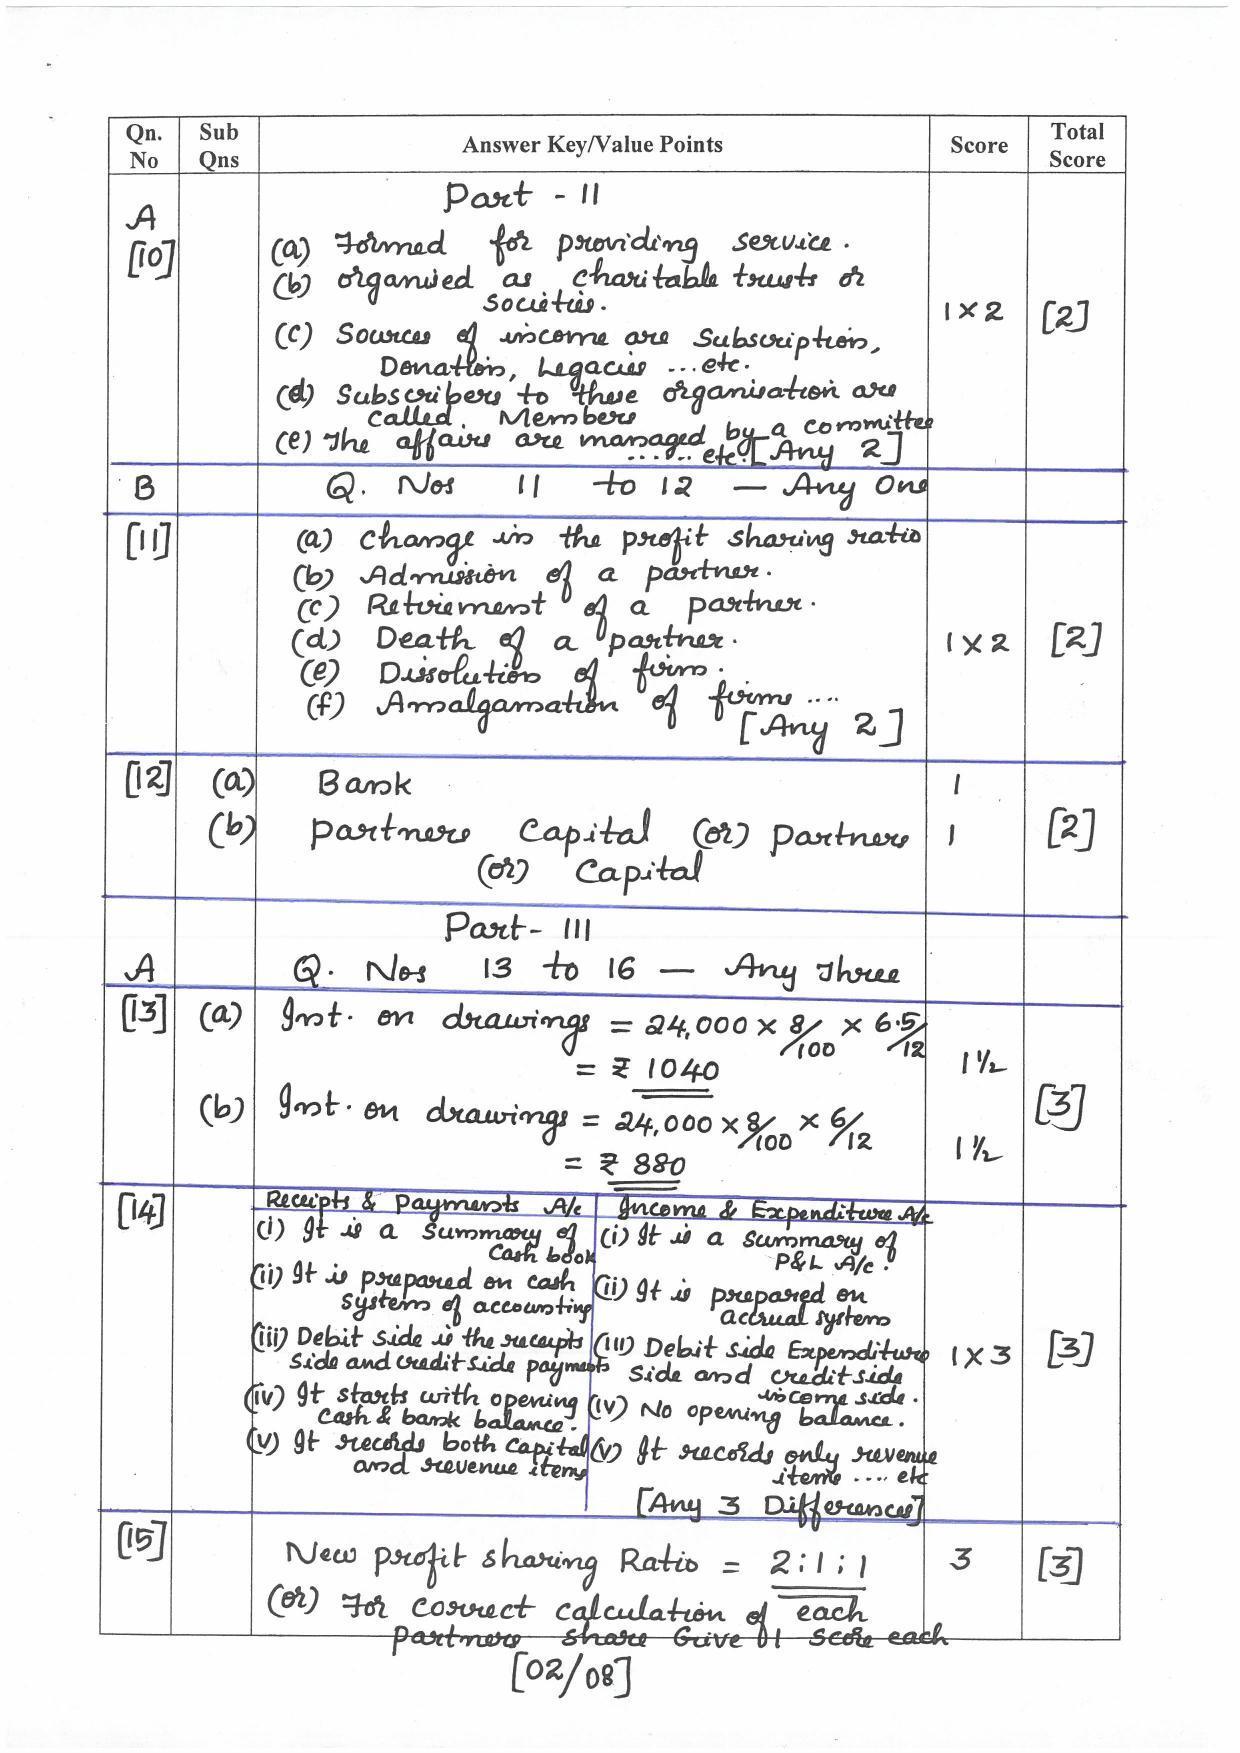 Qn. No | Sub Qns | Answer Key/Value Points | Score | Total Score
Part - II
A
[10] (a) Formed for providing service.
(b) organised as charitable trusts or
societies.
1 x 2 [2]
(c) Sources of income are Subscription,
Donation, Legacies ...etc.
(d) Subscribers to these organisation are
called. Members
(e) The affairs are managed by a committee
...... etc. [Any 2]
B Q. Nos 11 to 12 — Any One
[11] (a) change in the profit sharing ratio
(b) Admission of a partner.
(c) Retirement of a partner.
(d) Death of a partner. 1 x 2 [2]
(e) Dissolution of firm.
(f) Amalgamation of firms ....
[Any 2]
[12] (a) Bank 1
(b) Partners Capital (or) Partners 1 [2]
(or) Capital
Part- III
A Q. Nos 13 to 16 — Any Three
[13] (a) Int. on drawings = 24,000 x 8/100 x 6.5/12
= ₹ 1040 1 1/2
(b) Int. on drawings = 24,000 x 8/100 x 6/12 [3]
= ₹ 880 1 1/2
[14] Receipts & Payments A/c | Income & Expenditure A/c
(i) It is a Summary of
Cash book
(i) It is a summary of
P&L A/c.
(ii) It is prepared on cash
system of accounting
(ii) It is prepared on
accrual system
(iii) Debit side is the receipts
side and credit side payments
(iii) Debit side Expenditure
side and credit side
income side.
1 x 3 [3]
(iv) It starts with opening
cash & bank balance.
(iv) No opening balance.
(v) It records both Capital
and revenue items
(v) It records only revenue
items .... etc
[Any 3 Differences]
[15] New profit sharing Ratio = 2:1:1 3 [3]
(or) For correct calculation of each
partners share Give 01 Score each
[02/08]